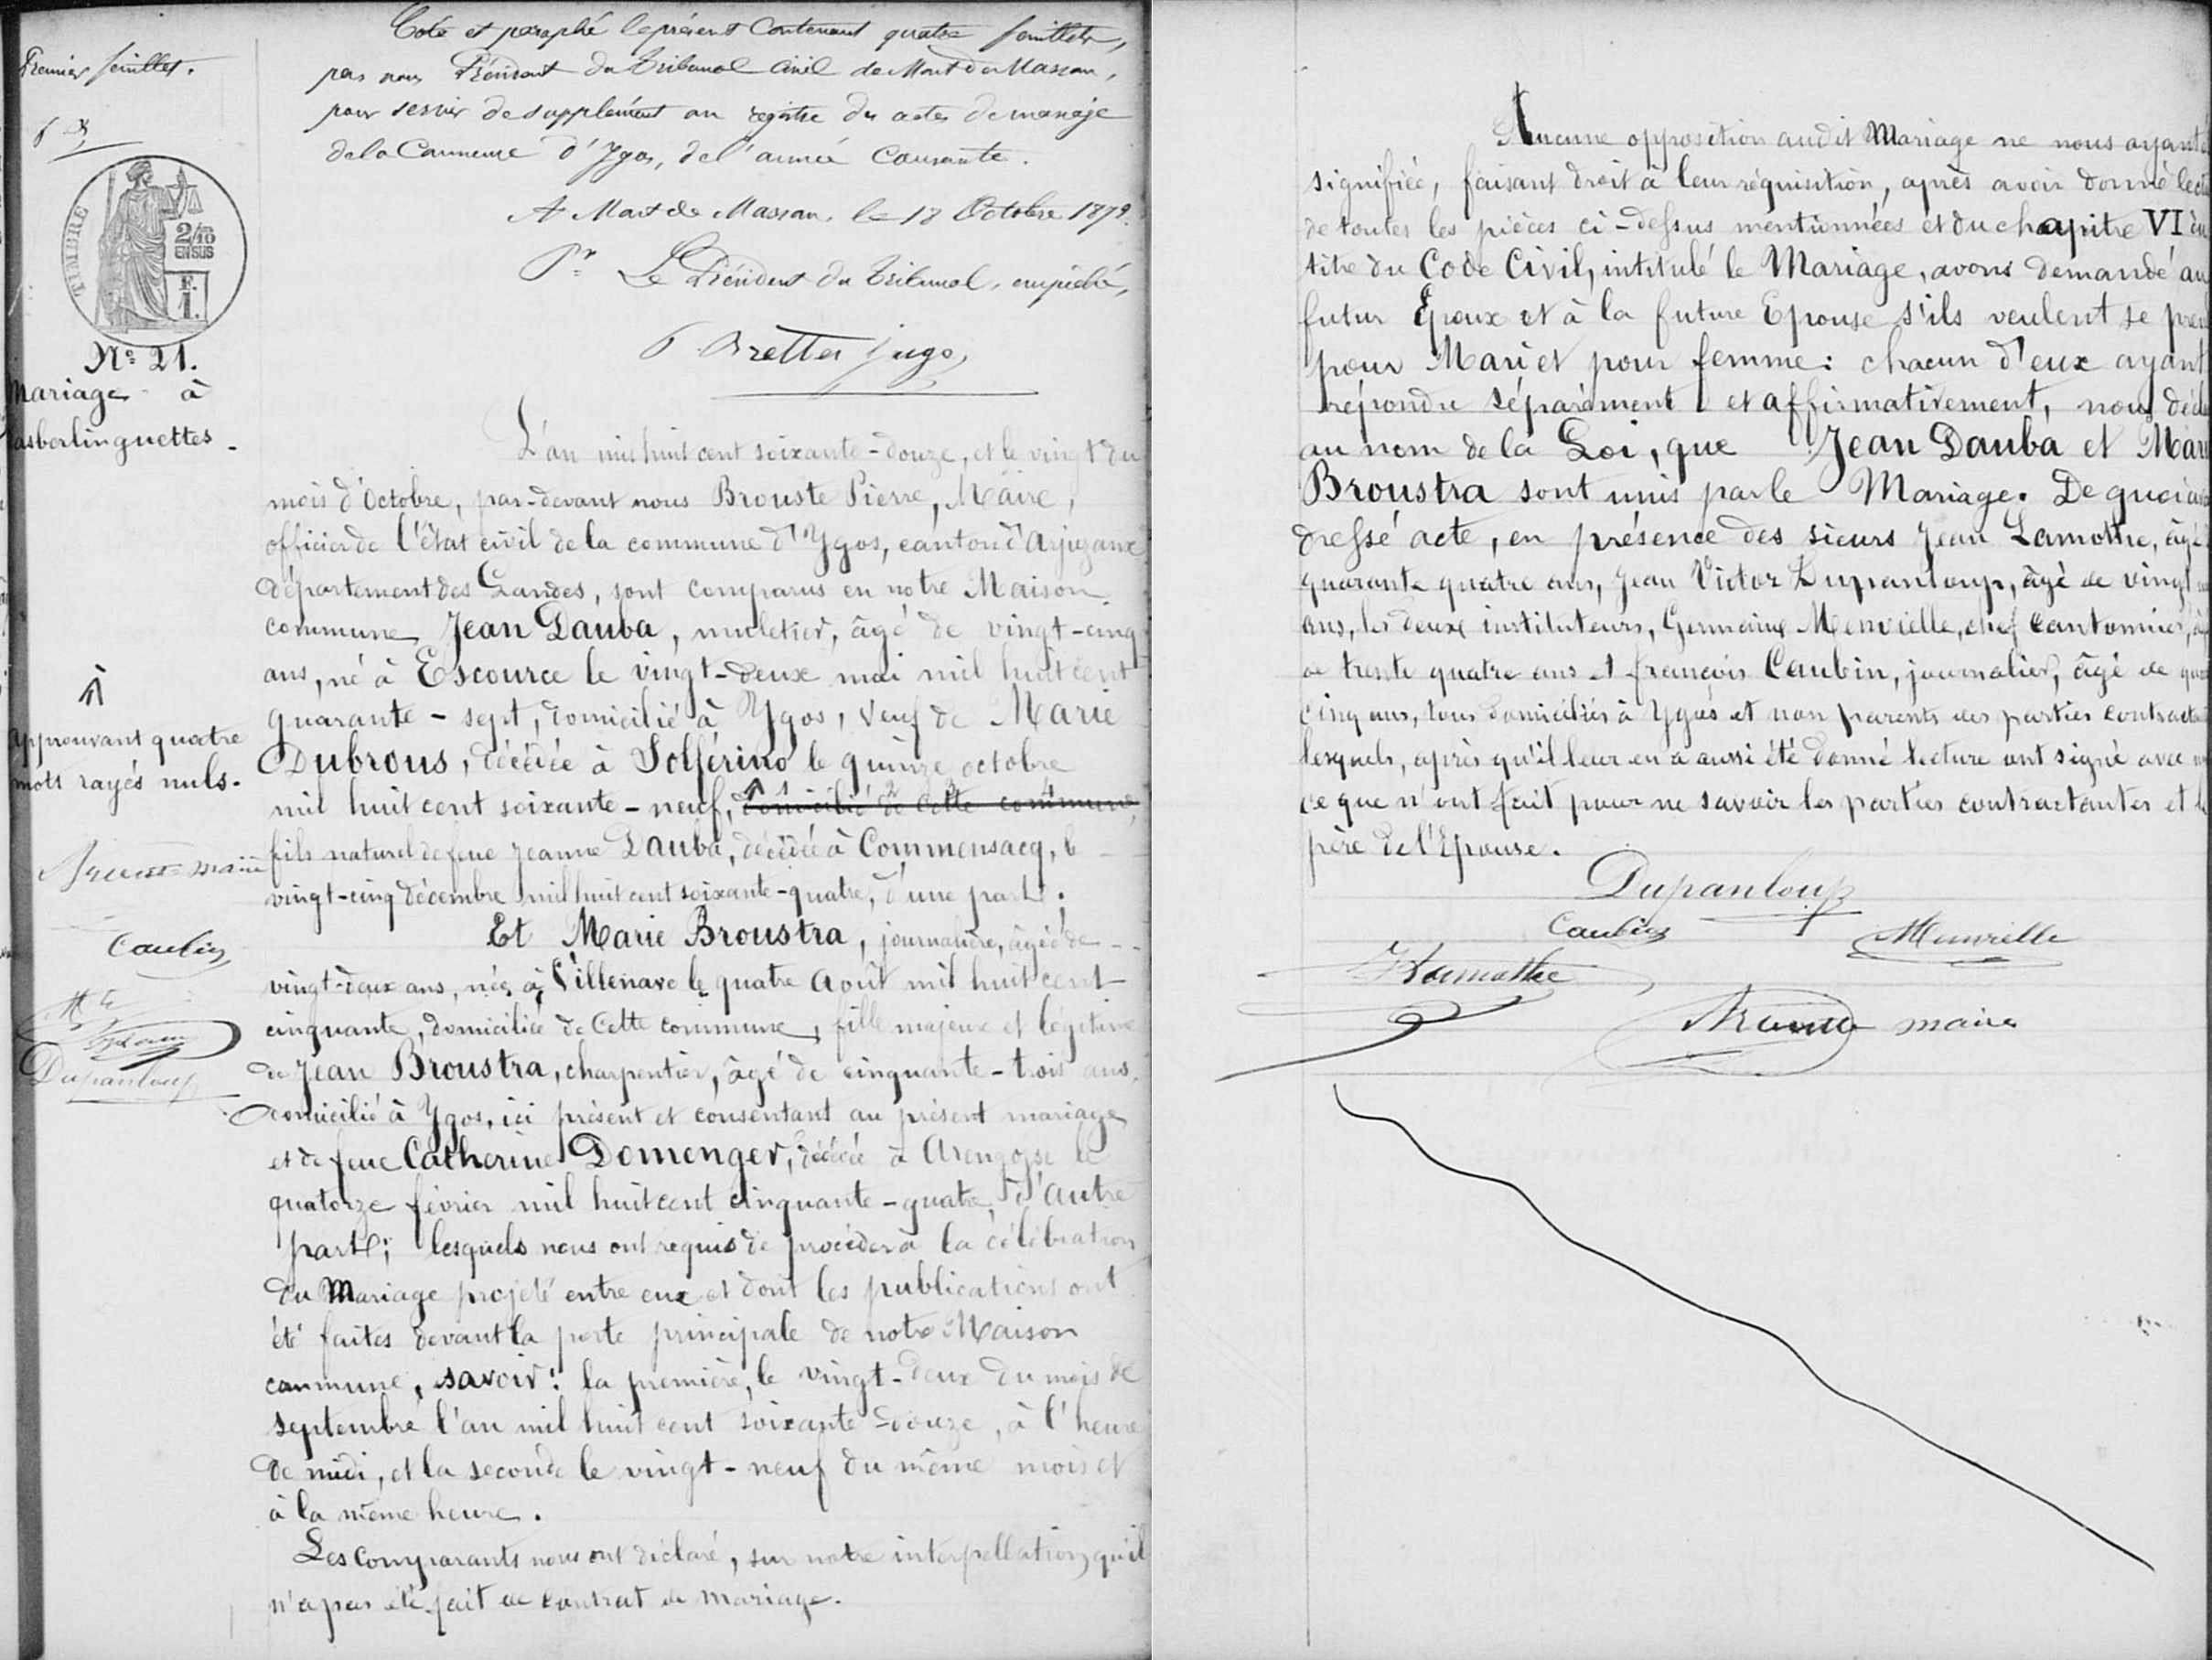 Premier feuillet.
Coté et paraphé le présent contenant quatre feuillets,
par nous Président du Tribunal Civil de Mont de Marsan,
pour servir de supplément au registre des actes de mariage
de la Commune d'Ygos, de l'année courante.
A Mont de Marsan, le 18 Octobre 1872.
Pr Le Président du Tribunal, empêché,
juge,
TIMBRE
2/10
EN SUS
F.
1.
No 21.
Mariage à
asberlinguettes.
L'an mil huit cent soixante-douze, et le vingt du
mois d'Octobre, par-devant nous Brouste Pierre, Maire,
officier de l'état civil de la commune d'Ygos, canton d'Arjuzanx
département des Landes, sont comparus en notre Maison
commune Jean Dauba, muletier, âgé de vingt-cinq
ans, né à Escource le vingt-deux mai mil huit cent
quarante-sept, domicilié à Ygos, veuf de Marie
Dubrous, décédée à Solférino le quinze octobre
mil huit cent soixante-neuf, domicilié de cette commune,
fils naturel de feue Jeanne Dauba, décédée à Commensacq, le
vingt-cinq décembre mil huit cent soixante-quatre, d'une part.
Et Marie Broustra, journalière, âgée de
vingt-deux ans, née à Villenave le quatre Août mil huit cent
cinquante, domiciliée de cette commune, fille majeure et légitime
de Jean Broustra, charpentier, âgé de cinquante-trois ans,
domicilié à Ygos, ici présent et consentant au présent mariage
et de feue Catherine Domenger, décédée à Arengosse le
quatorze février mil huit cent cinquante-quatre, d'autre
part; lesquels nous ont requis de procéder à la célébration
du Mariage projeté entre eux et dont les publications ont
été faites devant la porte principale de notre Maison
commune, savoir: la première, le vingt-deux du mois de
septembre l'an mil huit cent soixante-douze, à l'heure
de midi, et la seconde le vingt-neuf du même mois et
à la même heure.
Les Comparants nous ont déclaré, sur notre interpellation, qu'il
n'a pas été fait de contrat de mariage.
Approuvant quatre
mots rayés nuls.
Brouste maire
Caubin
Dupanloup
Aucune opposition audit Mariage ne nous ayant
signifiée, faisant droit à leur réquisition, après avoir donné lect
de toutes les pièces ci-dessus mentionnées et du chapitre VI du
titre du Code Civil, intitulé le Mariage, avons demandé au
futur Epoux et à la future Epouse s'ils veulent se pren
pour Mari et pour femme: chacun d'eux ayant
répondu séparément et affirmativement, nous décl
au nom de la Loi, que Jean Dauba et Mari
Broustra sont unis par le Mariage. De quoi av
dressé acte, en présence des sieurs Jean Lamothe, âgé
quarante quatre ans, Jean Victor Dupanloup, âgé de vingt
ans, les deux instituteurs, Germain Menvielle, chef cantonnier, âg
de trente quatre ans et françois Caubin, journalier, âgé de qua
cinq ans, tous domiciliés à Ygos et non parents des parties contracta
lesquels, après qu'il leur en a aussi été donné lecture ont signé avec n
ce que n'ont fait pour ne savoir les parties contractantes et le
père de l'Epouse.
Dupanloup
Caubin
Menvielle
Lamothe
Brouste maire